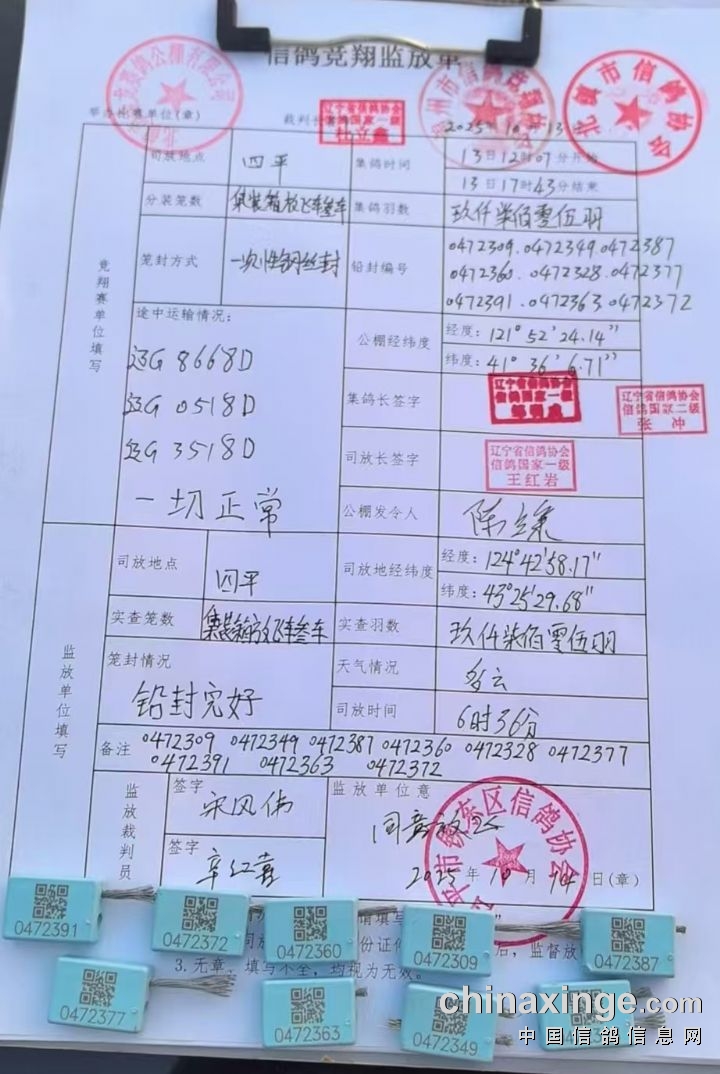 信鸽竞翔监放单
举办比赛单位(章)
裁判长
辽宁省信鸽协会
信鸽国家一级
北镇市信鸽协会
2025年10月13日
司放地点 四平 集鸽时间 13日12时07分开始
13日17时43分结束
分装笼数 集装箱放飞车叁车 集鸽羽数 玖仟柒佰零伍羽
笼封方式 一次性钢丝封 铅封编号 0472309.0472349.0472387
0472360.0472328.0472377
0472391.0472363.0472372
竞翔赛单位填写
途中运输情况:
辽G 8668D
辽G 0518D
辽G 3518D
一切正常
公棚经纬度 经度: 121°52′24.14″
纬度: 41°36′6.71″
集鸽长签字
辽宁省信鸽协会
信鸽国家一级
辽宁省信鸽协会
信鸽国家二级
张冲
司放长签字
辽宁省信鸽协会
信鸽国家一级
王红岩
公棚发令人
司放地点 四平 司放地经纬度 经度: 124°42′58.17″
纬度: 43°25′29.68″
实查笼数 集装箱放飞车叁车 实查羽数 玖仟柒佰零伍羽
监放单位填写
笼封情况 铅封完好
天气情况 多云
司放时间 6时36分
备注 0472309 0472349 0472387 0472360 0472328 0472377
0472391 0472363 0472372
监放裁判员
签字 宋风伟
签字
监放单位意
同意放飞
东区信鸽协会
2025年10月14日(章)
3.无章、填写不全,均视为无效。
0472391
0472372
0472360
0472309
0472387
0472377
0472363
0472349
chinaxinge.com
中国信鸽信息网